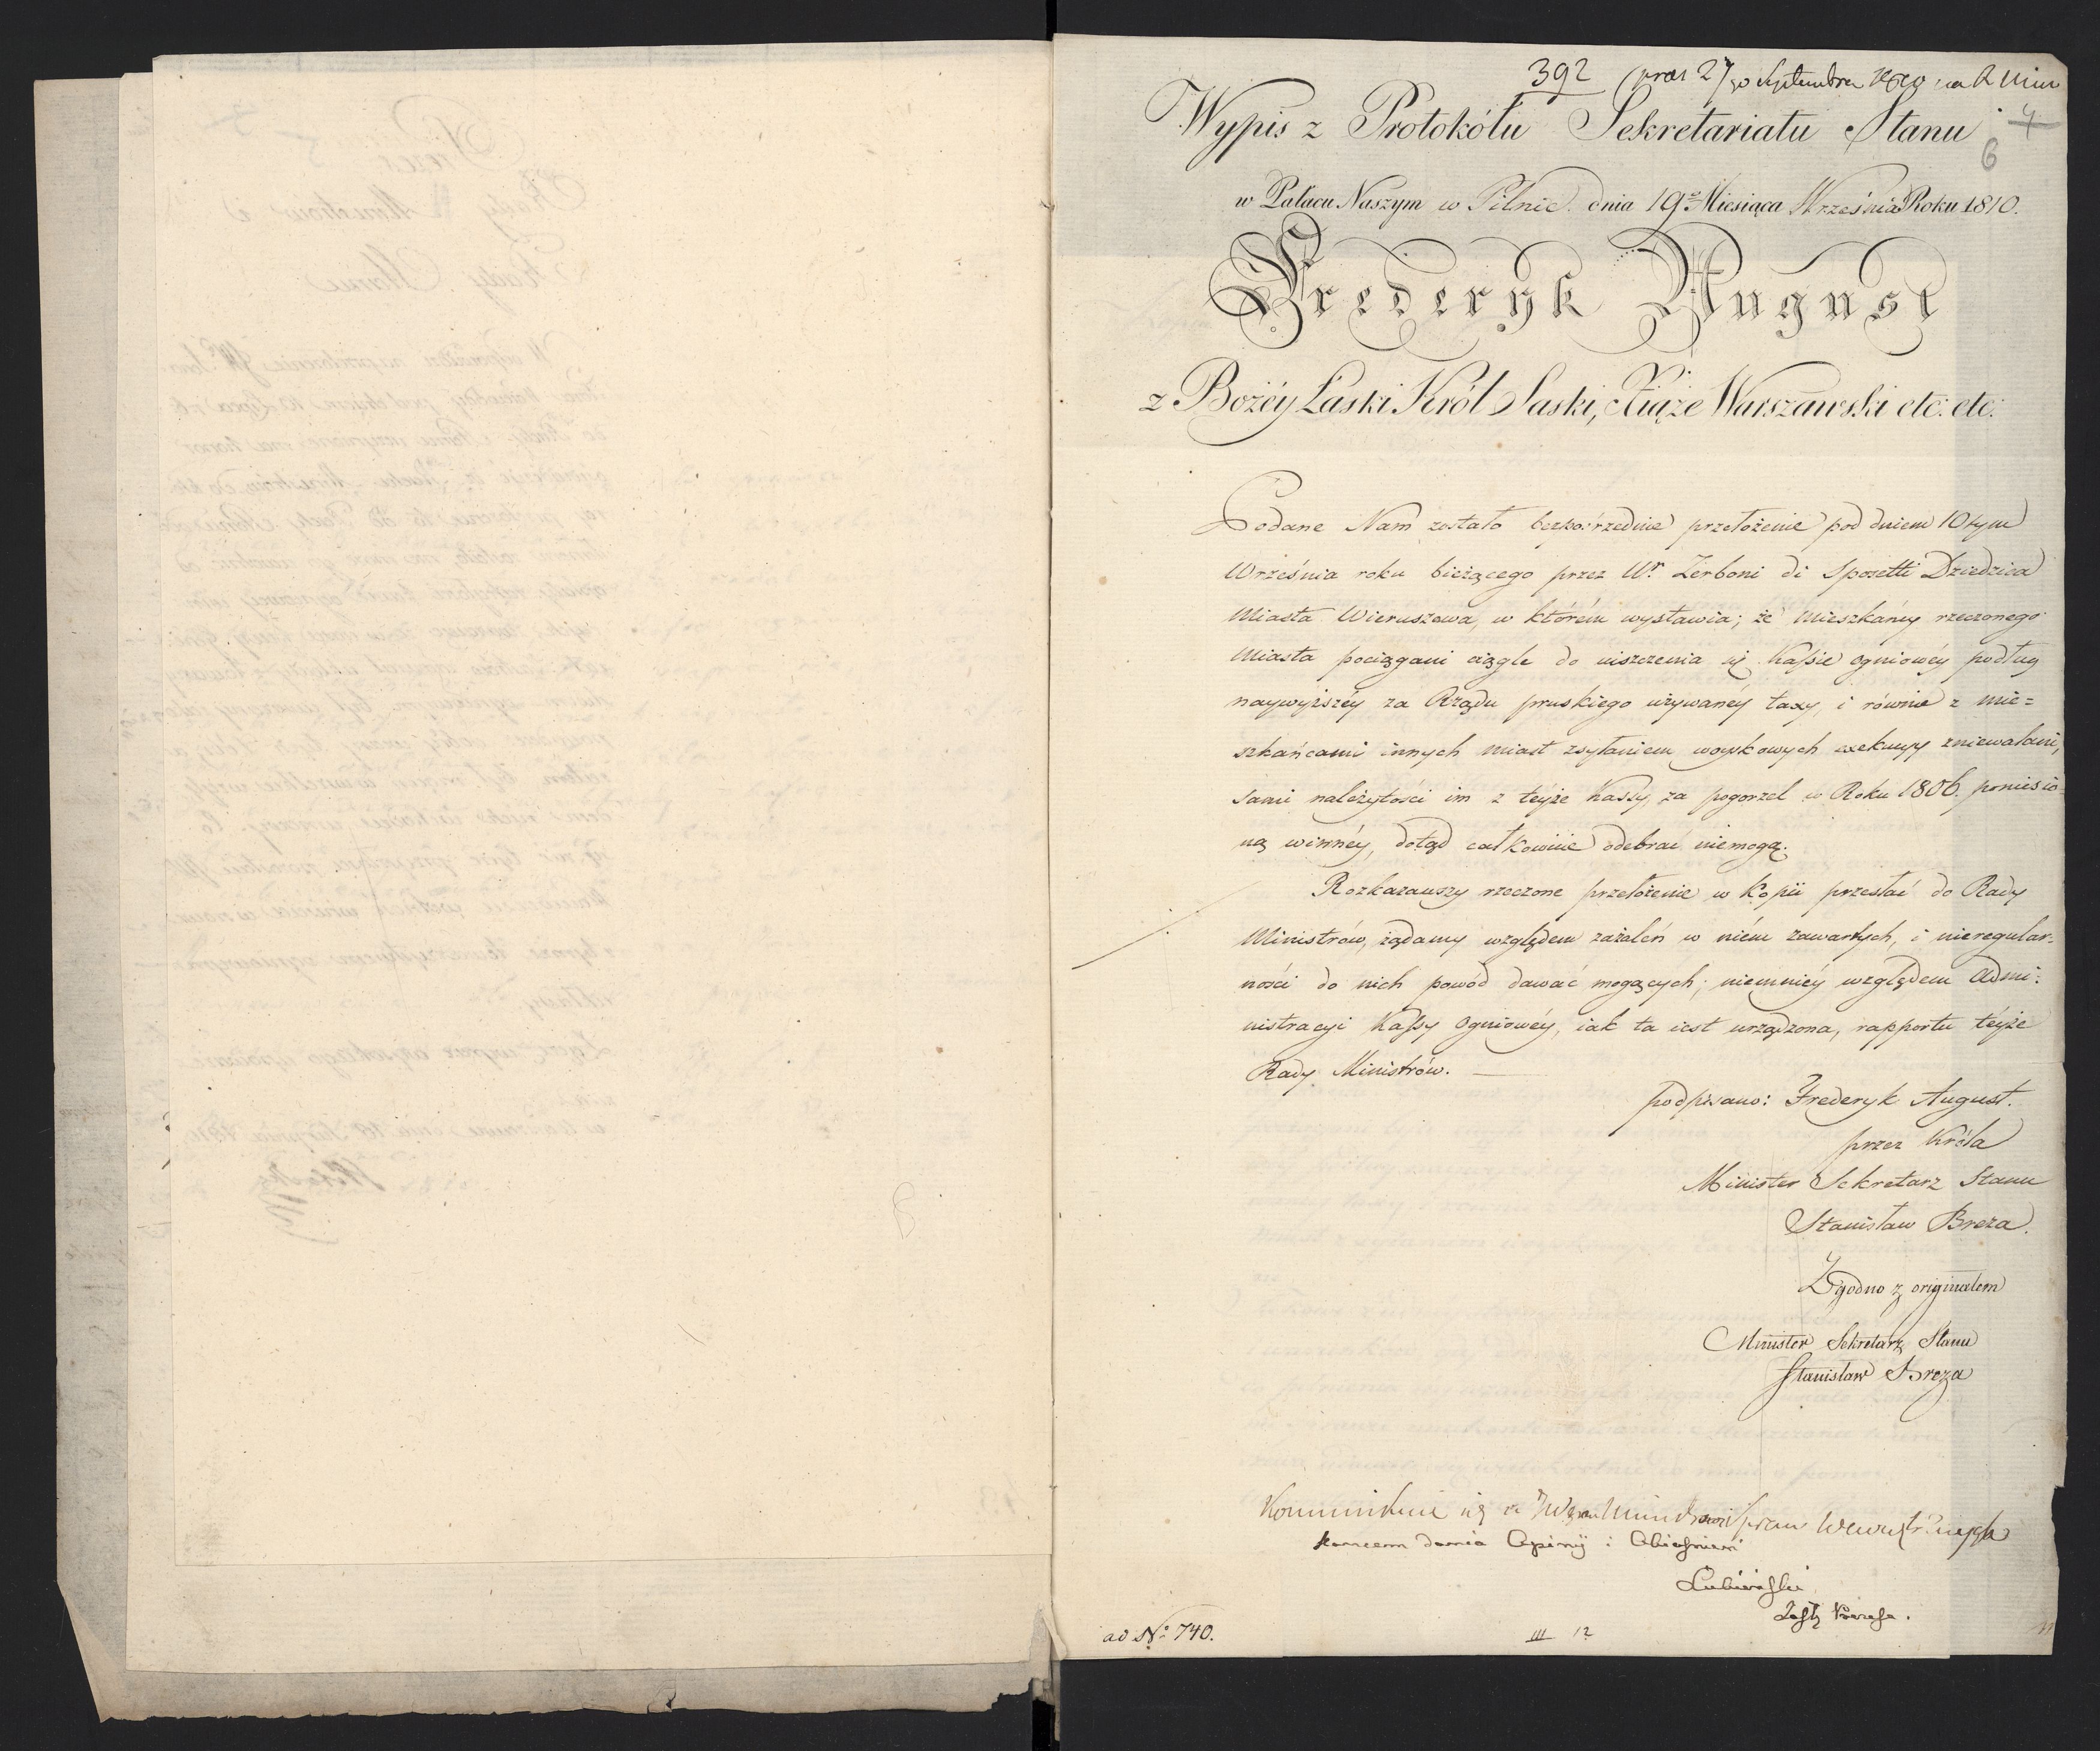 392 praes 27go Septembra 1810 na R Min
4
6
Wypis z Protokółu Sekretariatu Stanu
w Pałacu Naszym w Pilnic dnia 19º Miesiąca Września Roku 1810.
Frederyk August
z Bożéy Łaski Król Saski, Xiąże Warszawski etc: etc:
Podane Nam zostało bezpośrzednie przełożenie pod dniem 10tym
Września roku bieżącego przez Wº Zerboni di Sposetti Dziedzica
Miasta Wieruszewa, w którém wystawia; że mieszkańcy rzeczonego
Miasta pociągani ciągle do uiszczenia się Kassie ogniowéy podług
naywyższéy za Rządu pruskiego używanéy taxy, i równie z mie=
szkańcami innych miast zsyłaniem woyskowych exekucyy zniewalani,
sami należytości im z teyże Kassy, za pogorzel w Roku 1806. poniesio=
ną winnéy, dotąd całkowicie odebrać niemogą.
Rozkazawszy rzeczone przełożenie w Kopii przesłać do Rady
Ministrów, żądamy względem zażaleń w niém zawartych, i nieregular=
ności do nich powód dawać mogących; niemniéy względem Admi=
nistracyi Kassy Ogniowéy, iak ta iest urządzona, rapportu téyże
Rady Ministrów.
podpisano: Frederyk August.
przez Króla
Minister Sekretarz Stanu
Stanisław Breza.
Zgodno z originałem
Minister Sekretarz Stanu
Stanisław Breza
Kommunikuie się Ministrowi Spraw Wewnętrznych
koncem dania Opinii i Obiaśnień
Lubieński
Zastę Prezesa.
ad Nº 740.
III 12